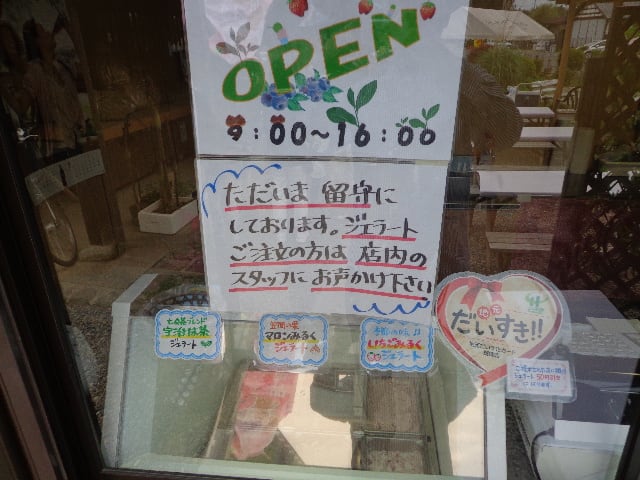 OPEN
9:00~16:00
ただいま 留守に
しております。ジェラート
ご注文の方は 店内の
スタッフに お声かけ下さい
宇治抹茶
ジェラート
笠間の栗
マロンみるく
ジェラート
いちごみるく
ジェラート
地元
だいすき!!